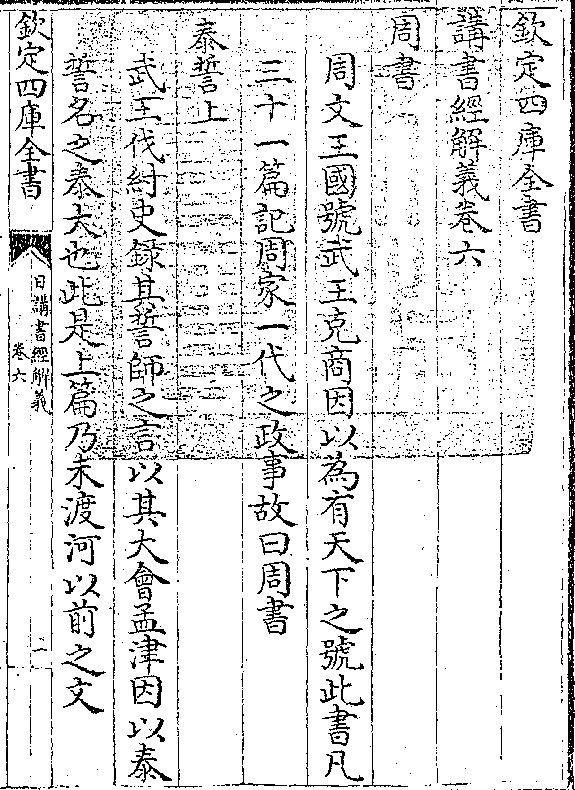 欽定四庫全書
講書經解義卷六
周書
周文王國號武王克商因以為有天下之號此書凡
三十一篇記周家一代之政事故曰周書
泰誓上
武王伐紂史録其誓師之言以其大會孟津因以泰
誓名之泰大也此是上篇乃未渡河以前之文
欽定四庫全書
日講書經解義
卷六
一